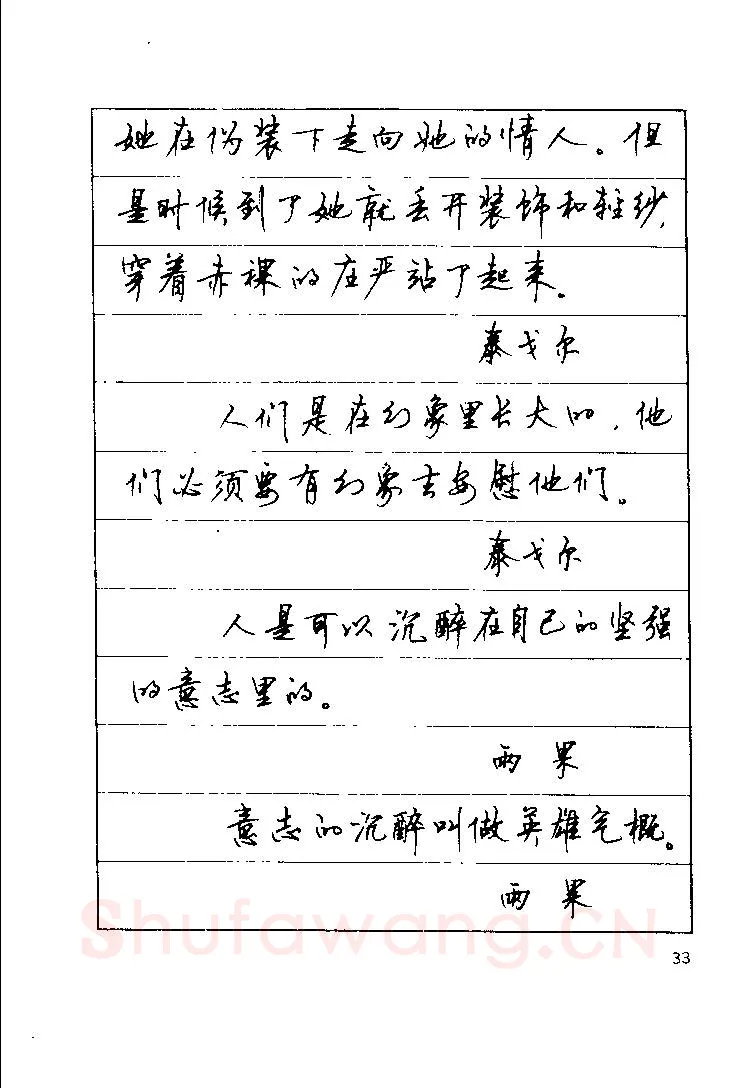 她在伪装下走向她的情人。但
是时候到了她就丢开装饰和轻纱,
穿着赤裸的庄严站了起来。
泰戈尔
人们是在幻象里长大的，他
们必须要有幻象去安慰他们。
泰戈尔
人是可以沉醉在自己的坚强
的意志里的。
雨果
意志的沉醉叫做英雄气概。
雨果
Shufawang.CN
33